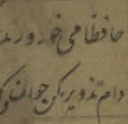 حافظا می خور و رند
دام تزویر مکن چون دگر